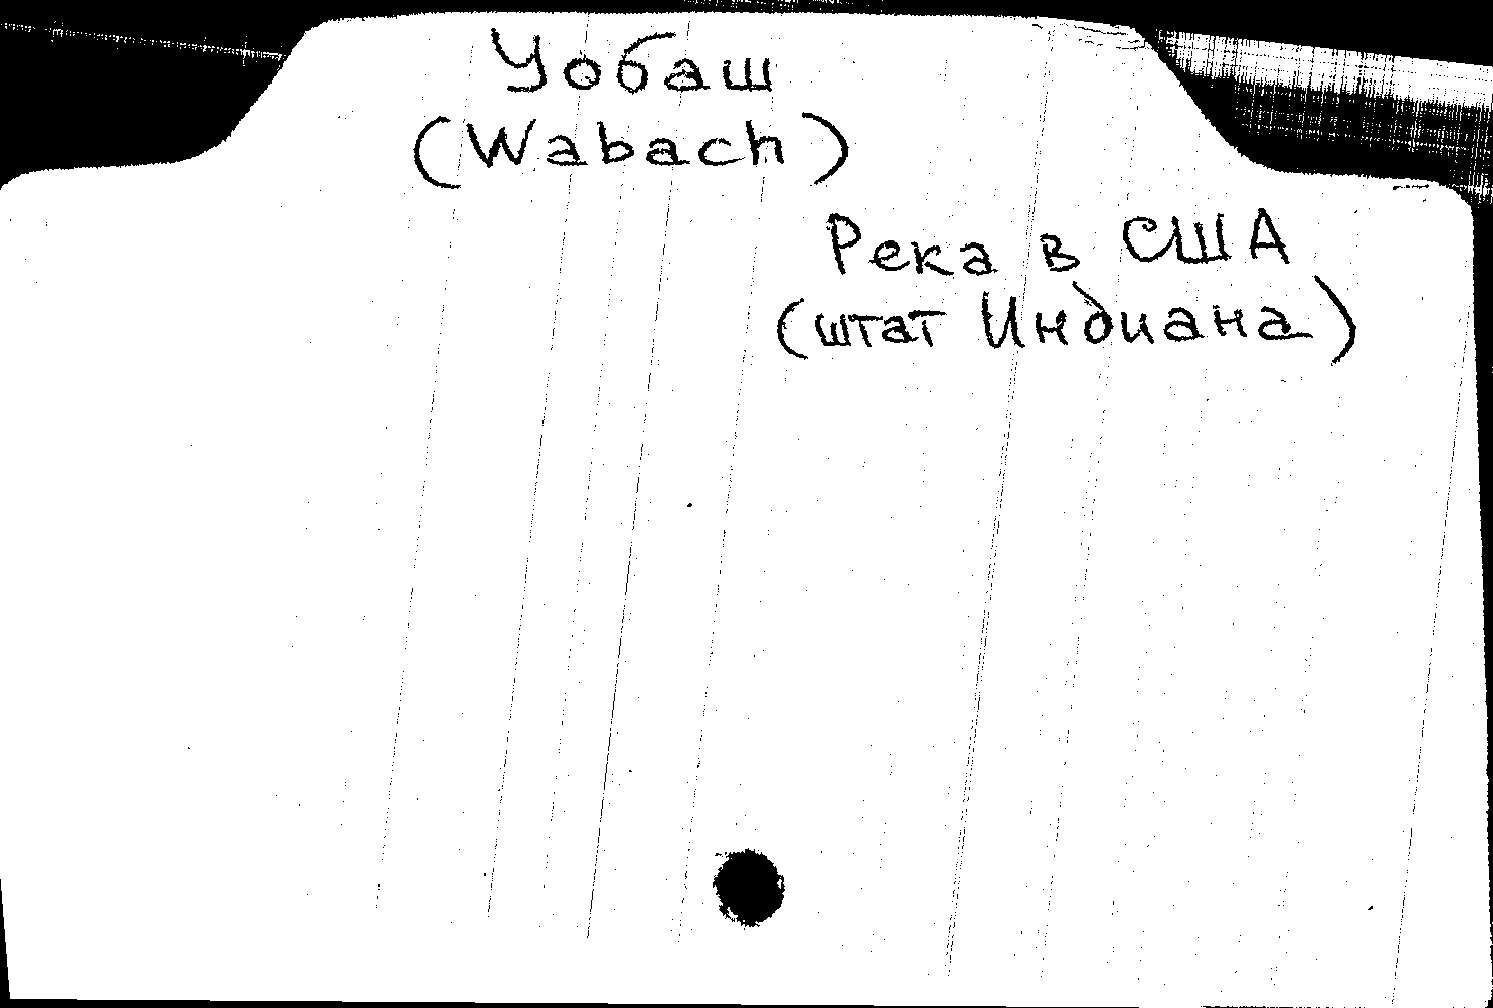 Уобаш
(Wabach)
Река в США
(штат Индиана)